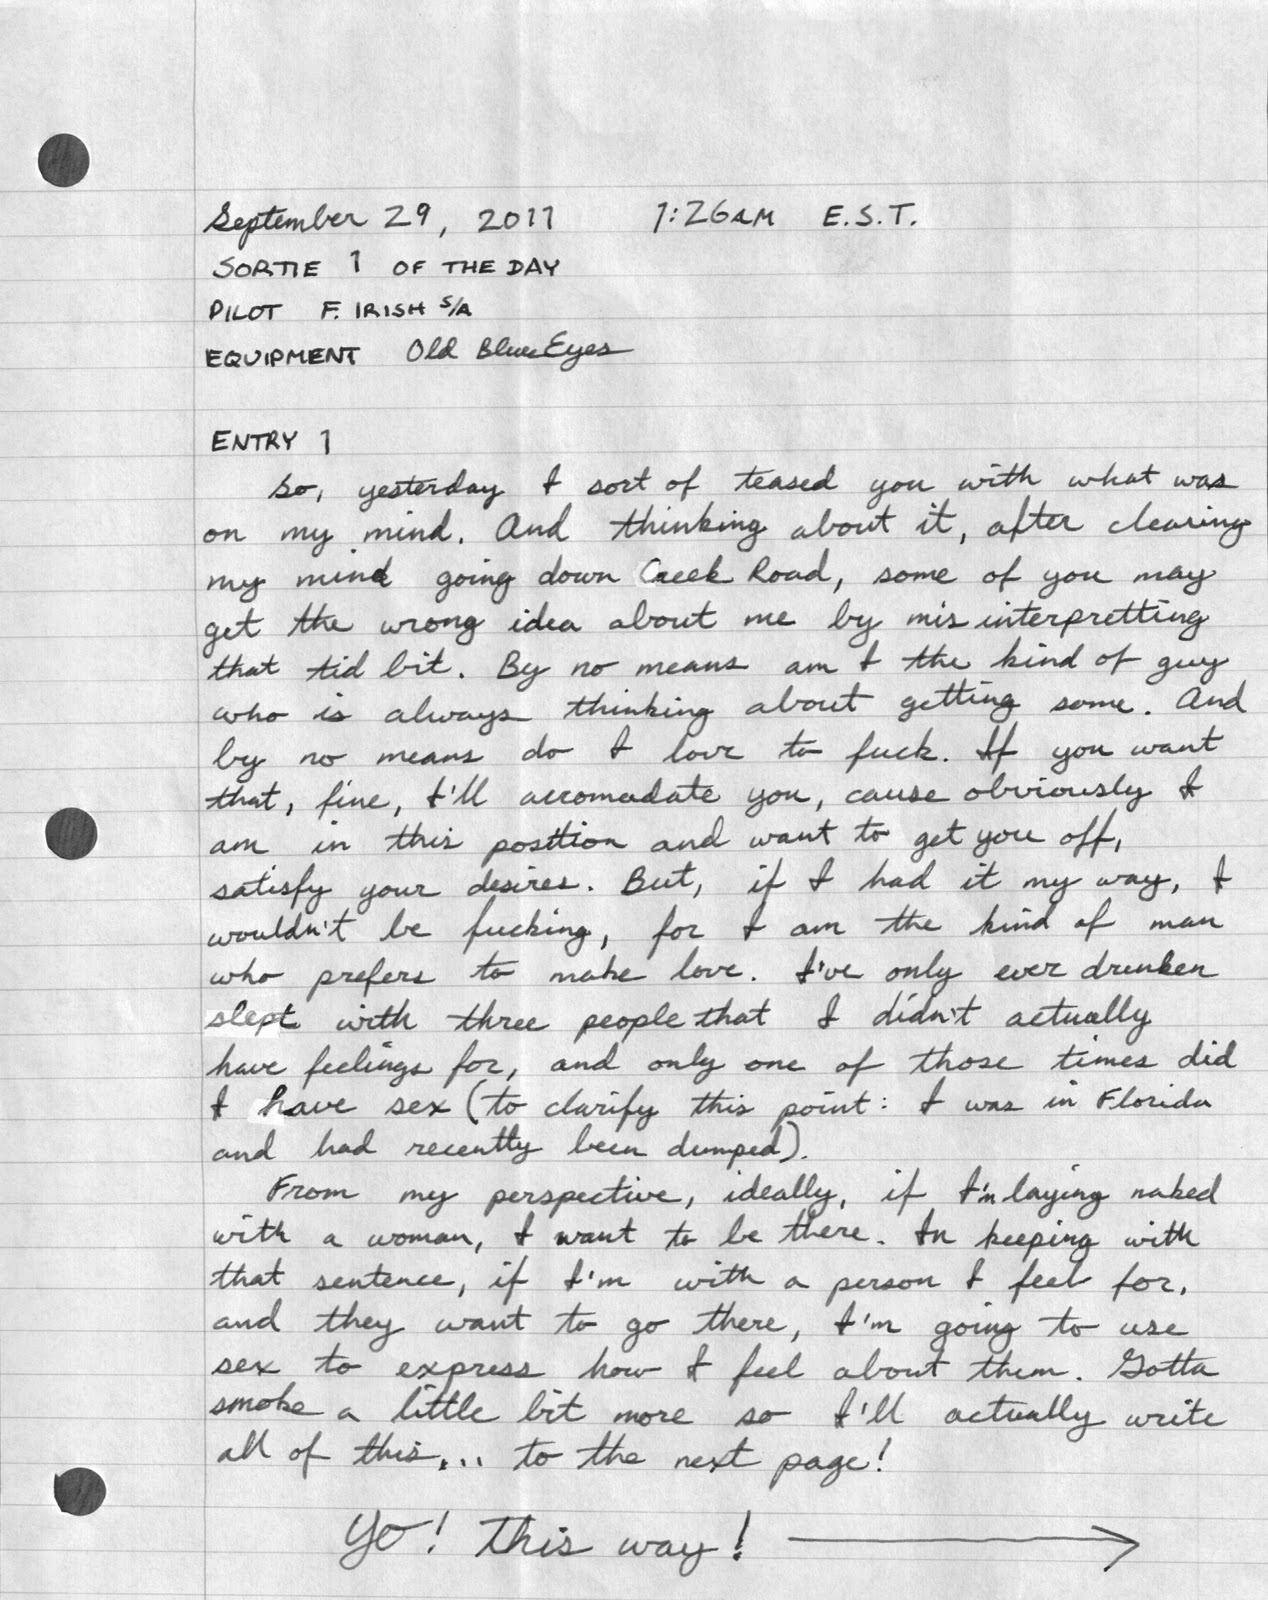 September 29, 2011 1:26AM E.S.T.
SORTIE 1 OF THE DAY
PILOT F. IRISH S/A
EQUIPMENT Old Blue Eyes
ENTRY 1
So, yesterday I sort of teased you with what was
on my mind. And thinking about it, after clearing
my mind going down Creek Road, some of you may
get the wrong idea about me by mis interpretting
that tid bit. By no means am I the kind of guy
who is always thinking about getting some. And
by no means do I love to fuck. If you want
that, fine, I'll accomodate you, cause obviously I
am in this position and want to get you off,
satisfy your desires. But, if I had it my way, I
wouldn't be fucking, for I am the kind of man
who prefers to make love. I've only ever drunken
slept with three people that I didn't actually
have feelings for, and only one of those times did
I have sex (to clarify this point: I was in Florida
and had recently been dumped).
From my perspective, ideally, if I'm laying naked
with a woman, I want to be there. In keeping with
that sentence, if I'm with a person I feel for,
and they want to go there, I'm going to use
sex to express how I feel about them. Gotta
smoke a little bit more so I'll actually write
all of this... to the next page!
Yo! This way!